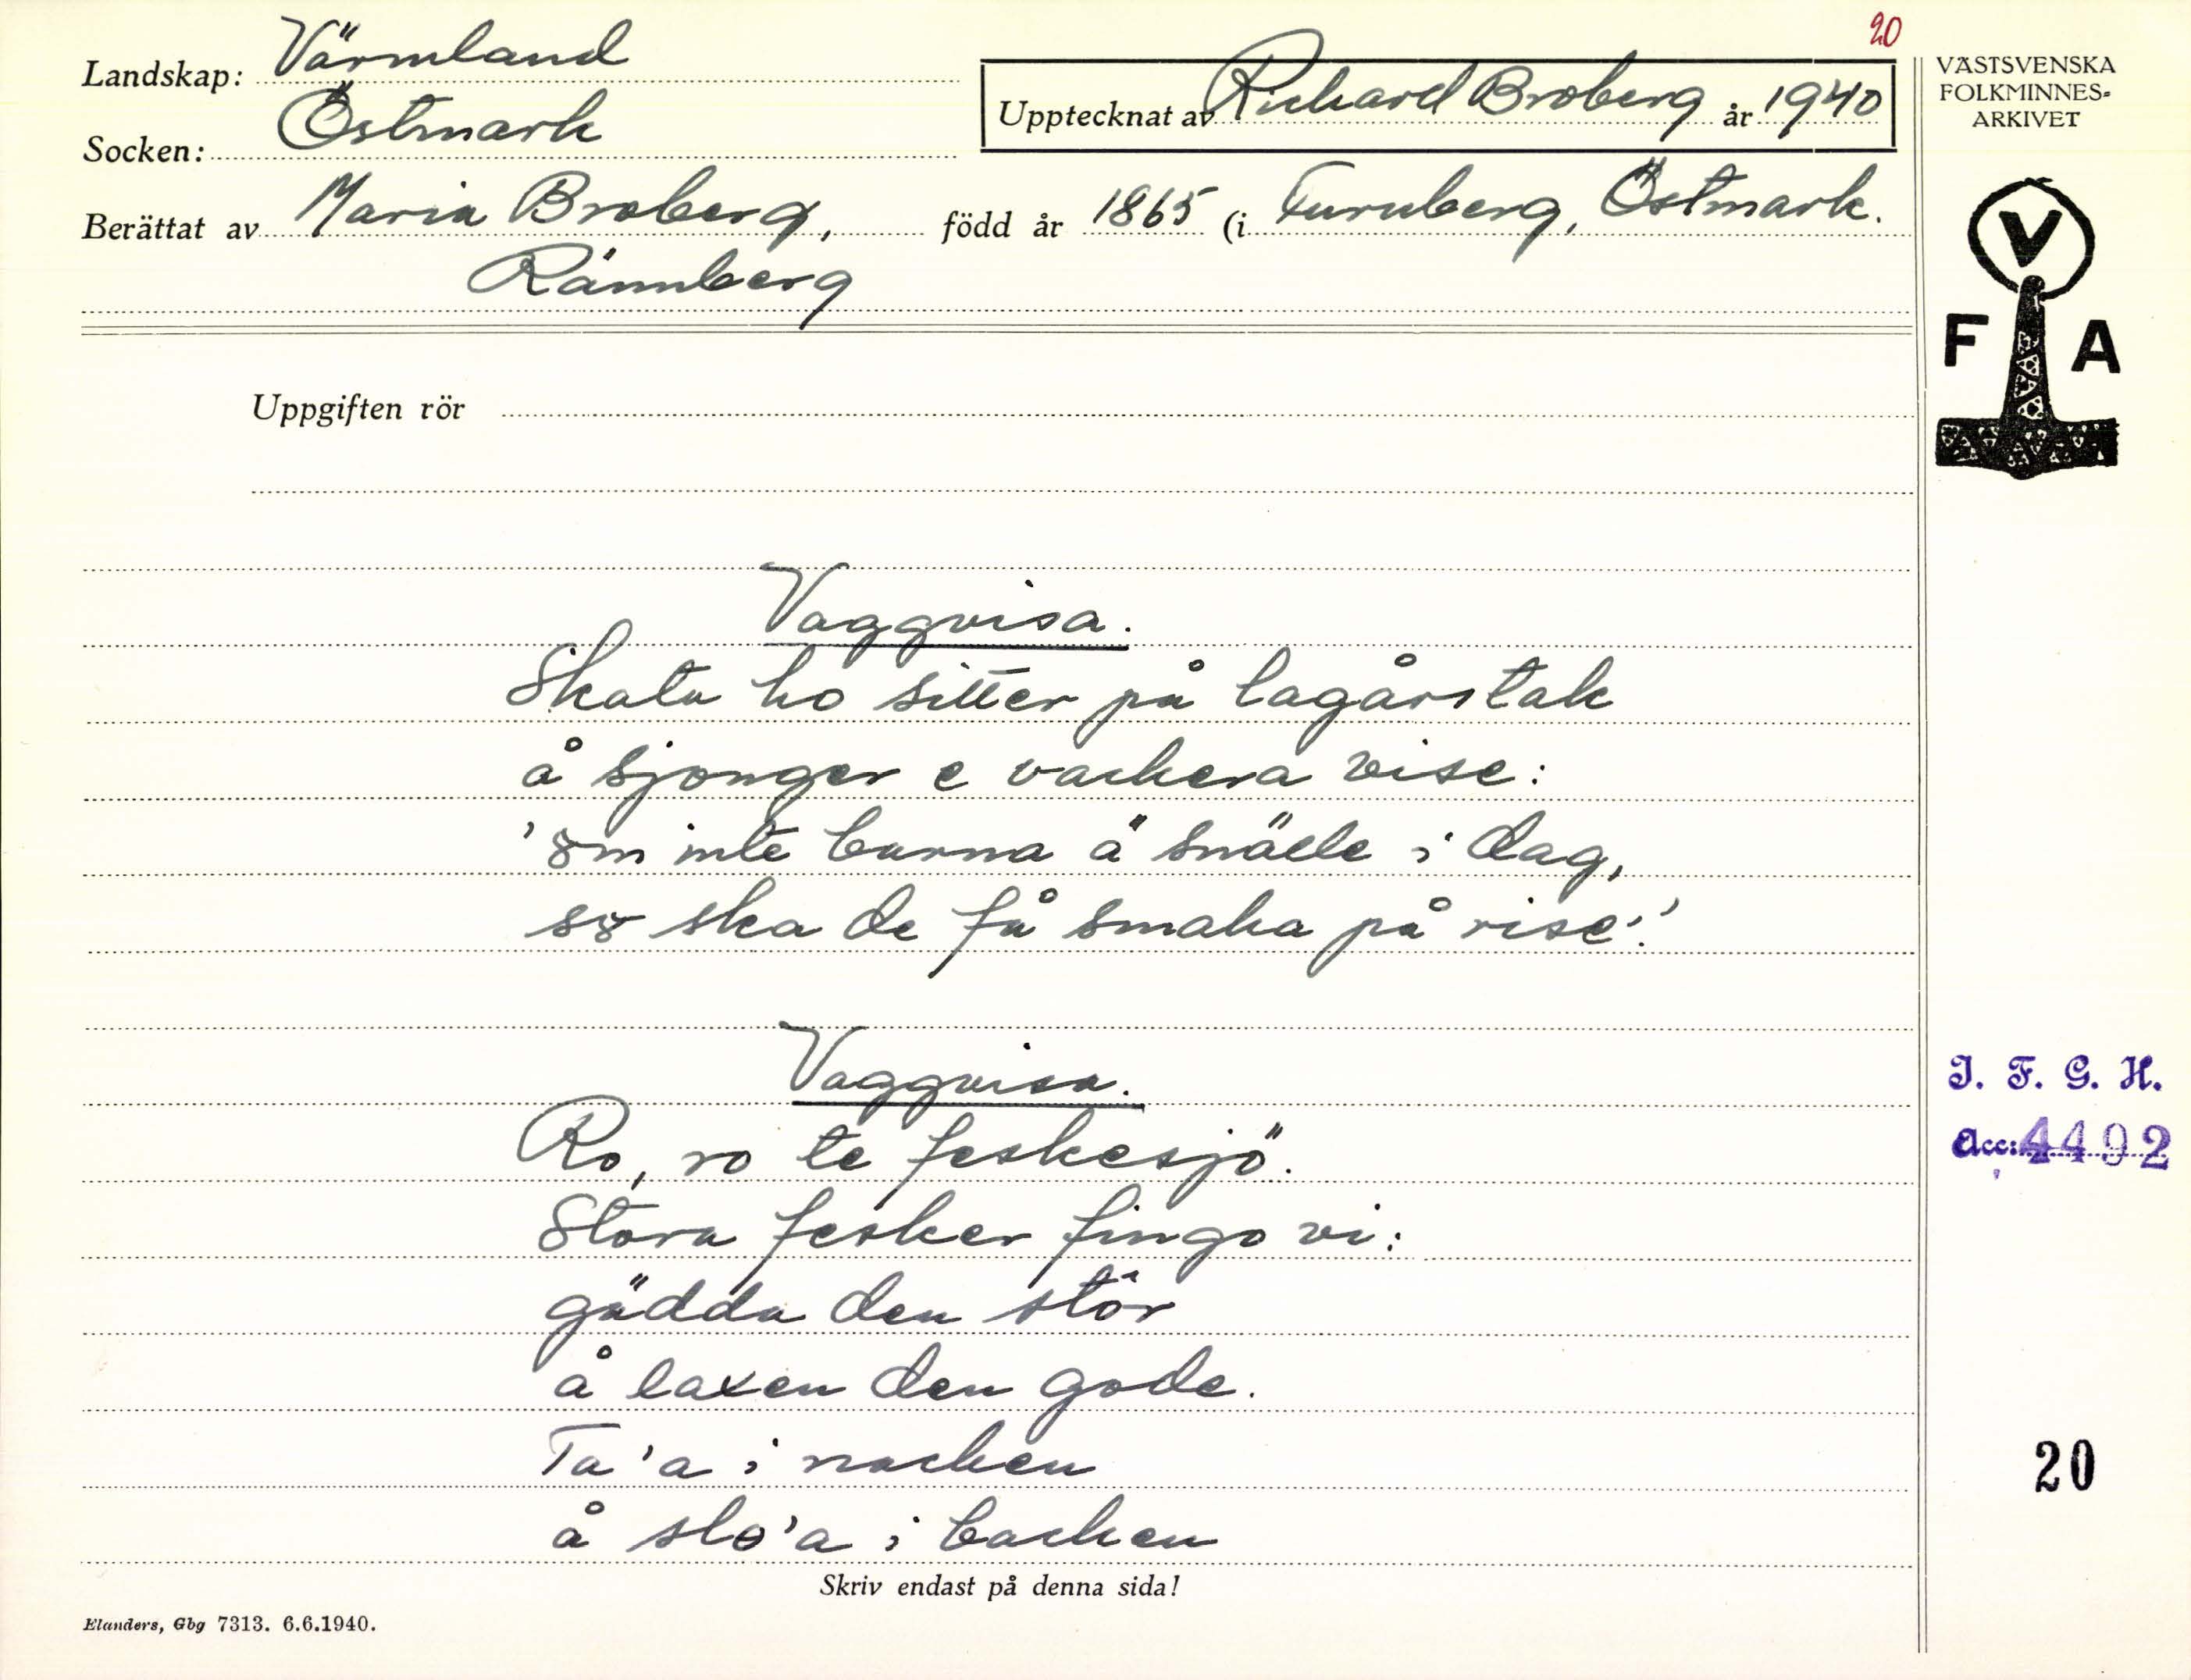 20
Landskap: Värmland
Socken: Östmark
Upptecknat av Richard Broberg år 1940
Berättat av Maria Broberg, född år 1865 (i Furuberg, Östmark.
Rännberg
VÄSTSVENSKA
FOLKMINNES-
ARKIVET
V
F A
Uppgiften rör
Vaggvisa.
Skata ho sitter på lagårstak
å sjonger e vackera vise:
'om inte barna ä snälle i dag,
so ska de få smaka på rise!'
Vaggvisa.
Ro, ro te feskesjö.
Stora fesker fingo vi:
gädda den stör
å laxen den gode.
Ta 'a i nacken
å slo 'a i backen
I. F. G. H.
Acc: 4492
20
Skriv endast på denna sida!
Elanders, Gbg 7313. 6.6.1940.